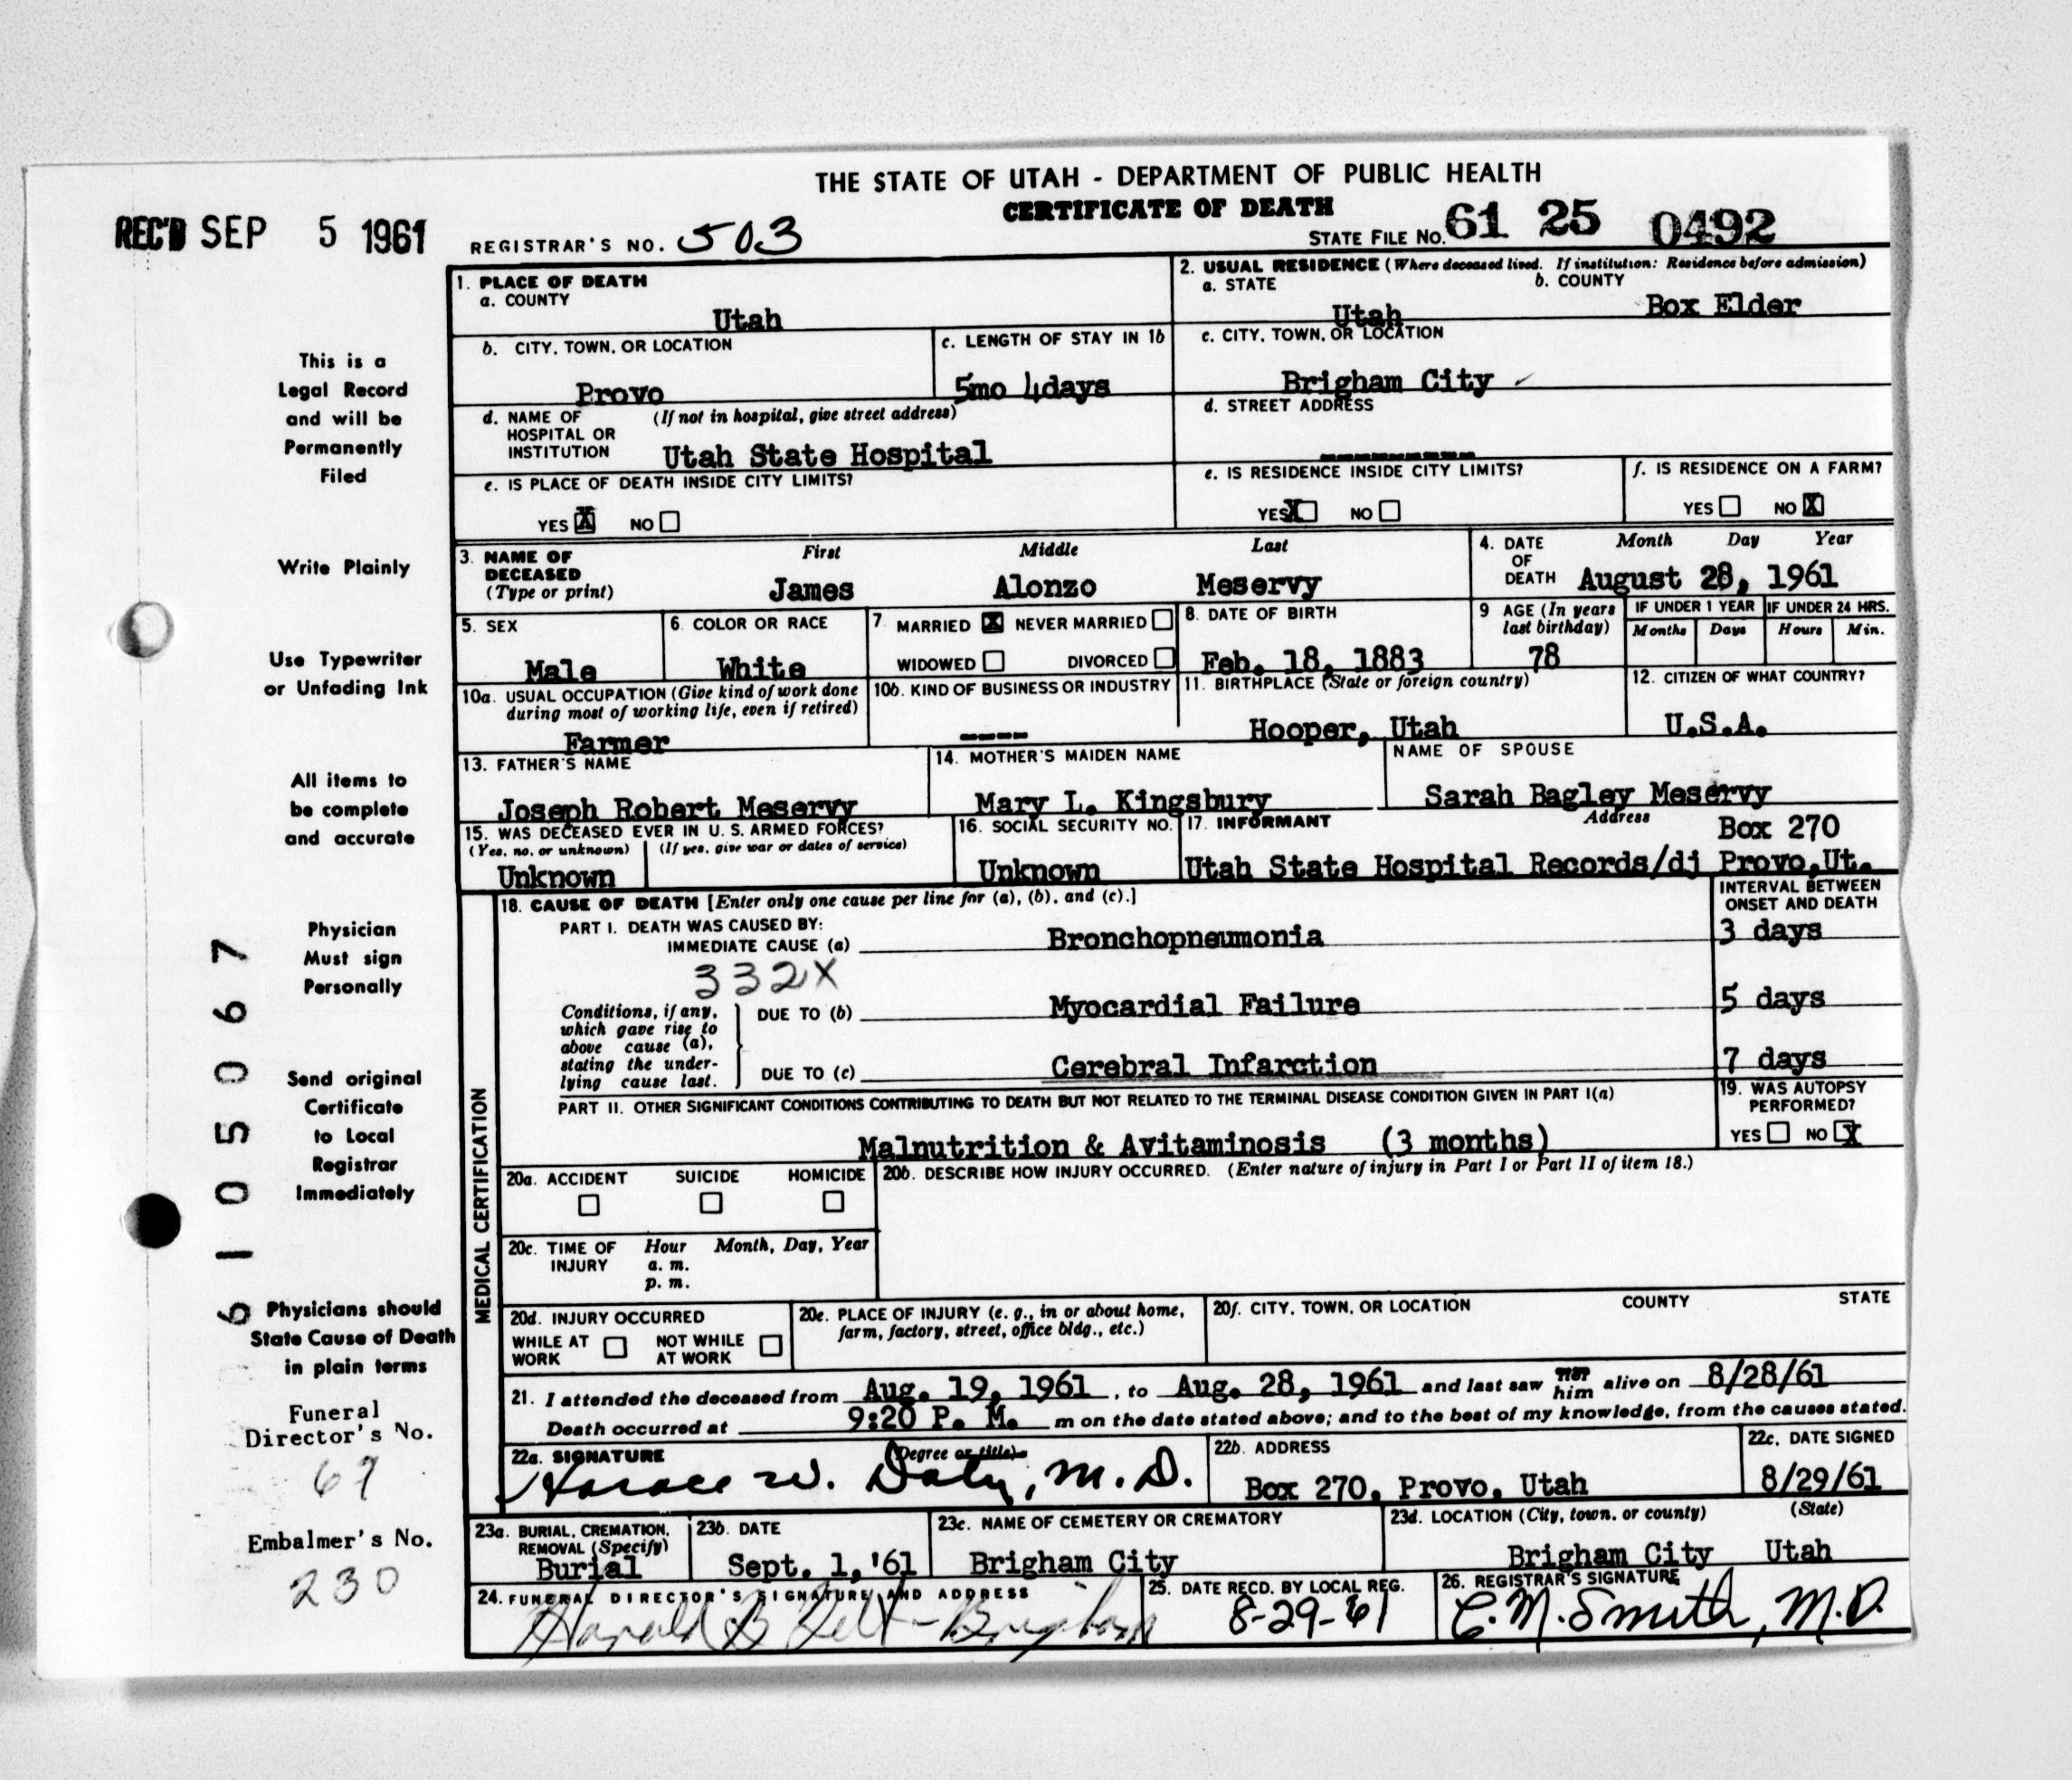 THE STATE OF UTAH - DEPARTMENT OF PUBLIC HEALTH
CERTIFICATE OF DEATH
REC'D SEP 5 1961
REGISTRAR'S NO. 503
STATE FILE NO. 61 25 0492
1. PLACE OF DEATH
a. COUNTY
Utah
2. USUAL RESIDENCE (Where deceased lived. If institution: Residence before admission)
a. STATE
Utah
b. COUNTY
Box Elder
b. CITY, TOWN, OR LOCATION
Provo
c. LENGTH OF STAY IN 1b
5mo 4days
c. CITY, TOWN, OR LOCATION
Brigham City
d. NAME OF (If not in hospital, give street address)
HOSPITAL OR
INSTITUTION
Utah State Hospital
d. STREET ADDRESS
----------
e. IS PLACE OF DEATH INSIDE CITY LIMITS?
YES X NO
e. IS RESIDENCE INSIDE CITY LIMITS?
YES X NO
f. IS RESIDENCE ON A FARM?
YES NO X
3. NAME OF
DECEASED
(Type or print)
First Middle Last
James Alonzo Meservy
4. DATE
OF
DEATH
Month Day Year
August 28, 1961
5. SEX
Male
6. COLOR OR RACE
White
7. MARRIED X NEVER MARRIED
WIDOWED DIVORCED
8. DATE OF BIRTH
Feb. 18, 1883
9 AGE (In years
last birthday)
78
IF UNDER 1 YEAR
Months Days
IF UNDER 24 HRS.
Hours Min.
10a. USUAL OCCUPATION (Give kind of work done
during most of working life, even if retired)
Farmer
10b. KIND OF BUSINESS OR INDUSTRY
----
11. BIRTHPLACE (State or foreign country)
Hooper, Utah
12. CITIZEN OF WHAT COUNTRY?
U.S.A.
13. FATHER'S NAME
Joseph Robert Meservy
14. MOTHER'S MAIDEN NAME
Mary L. Kingsbury
NAME OF SPOUSE
Sarah Bagley Meservy
15. WAS DECEASED EVER IN U. S. ARMED FORCES?
(Yes, no, or unknown) (If yes, give war or dates of service)
Unknown
16. SOCIAL SECURITY NO.
Unknown
17. INFORMANT Address
Box 270
Utah State Hospital Records/dj Provo,Ut.
18. CAUSE OF DEATH [Enter only one cause per line for (a), (b), and (c).]
INTERVAL BETWEEN
ONSET AND DEATH
PART I. DEATH WAS CAUSED BY:
IMMEDIATE CAUSE (a) Bronchopneumonia 3 days
332X
Conditions, if any,
which gave rise to
above cause (a),
stating the under-
lying cause last.
DUE TO (b) Myocardial Failure 5 days
DUE TO (c) Cerebral Infarction 7 days
PART II. OTHER SIGNIFICANT CONDITIONS CONTRIBUTING TO DEATH BUT NOT RELATED TO THE TERMINAL DISEASE CONDITION GIVEN IN PART I(a)
Malnutrition & Avitaminosis (3 months)
19. WAS AUTOPSY
PERFORMED?
YES NO X
MEDICAL CERTIFICATION
20a. ACCIDENT SUICIDE HOMICIDE
20b. DESCRIBE HOW INJURY OCCURRED. (Enter nature of injury in Part I or Part II of item 18.)
20c. TIME OF Hour Month, Day, Year
INJURY a. m.
p. m.
20d. INJURY OCCURRED
WHILE AT NOT WHILE
WORK AT WORK
20e. PLACE OF INJURY (e. g., in or about home,
farm, factory, street, office bldg., etc.)
20f. CITY, TOWN, OR LOCATION COUNTY STATE
21. I attended the deceased from Aug. 19, 1961, to Aug. 28, 1961 and last saw her him alive on 8/28/61
Death occurred at 9:20 P. M. m on the date stated above; and to the best of my knowledge, from the causes stated.
22a. SIGNATURE (Degree or title)
Horace W. Daty, M.D.
22b. ADDRESS
Box 270, Provo, Utah
22c. DATE SIGNED
8/29/61
23a. BURIAL, CREMATION,
REMOVAL (Specify)
Burial
23b. DATE
Sept. 1, '61
23c. NAME OF CEMETERY OR CREMATORY
Brigham City
23d. LOCATION (City, town, or county) (State)
Brigham City Utah
24. FUNERAL DIRECTOR'S SIGNATURE AND ADDRESS
Harold B Felt - Brigham
25. DATE RECD. BY LOCAL REG.
8-29-61
26. REGISTRAR'S SIGNATURE
C. M. Smith, M.D.
This is a
Legal Record
and will be
Permanently
Filed
Write Plainly
Use Typewriter
or Unfading Ink
All items to
be complete
and accurate
Physician
Must sign
Personally
Send original
Certificate
to Local
Registrar
Immediately
Physicians should
State Cause of Death
in plain terms
Funeral
Director's No.
67
Embalmer's No.
230
6105067